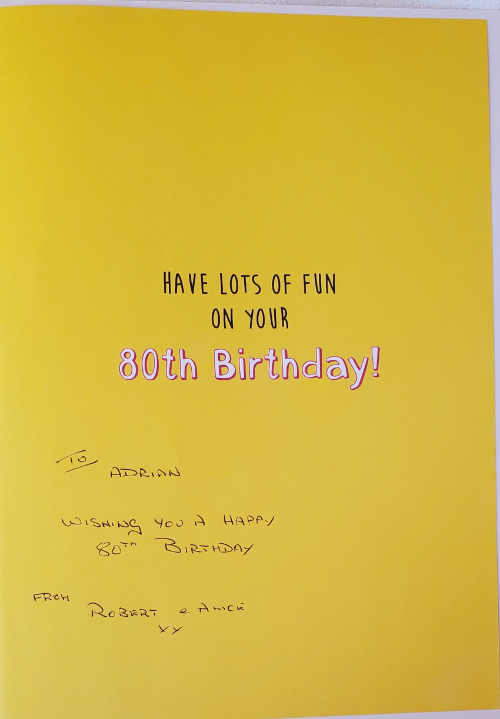 HAVE LOTS OF FUN
ON YOUR
80th Birthday!
TO
ADRIAN
WISHING YOU A HAPPY
80TH BIRTHDAY
FROM
ROBERT & ALICE
XX